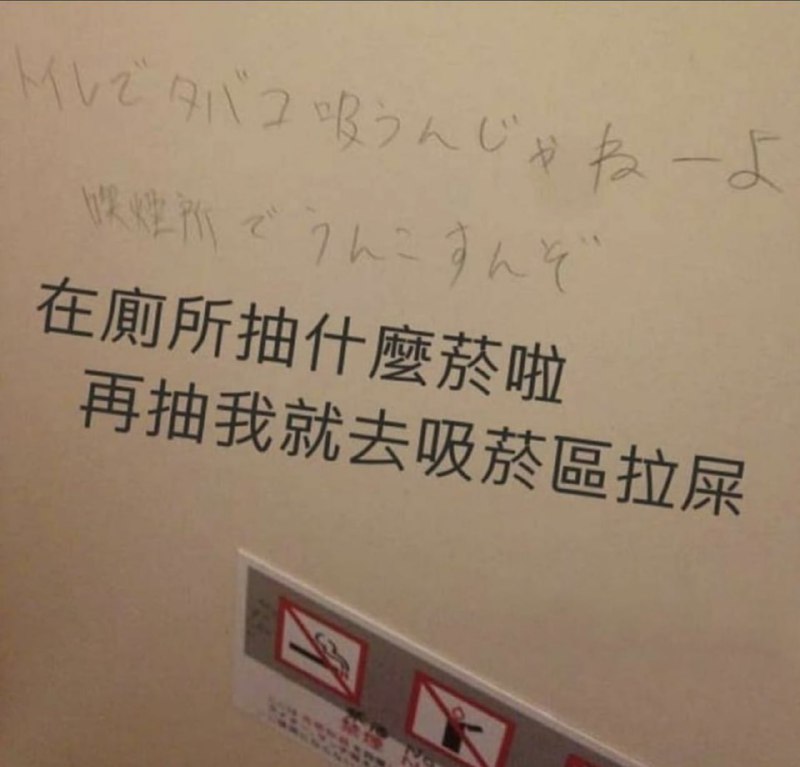 トイレでタバコ吸うんじゃねーよ
喫煙所でうんこすんぞ
在廁所抽什麼菸啦
再抽我就去吸菸區拉屎
禁煙